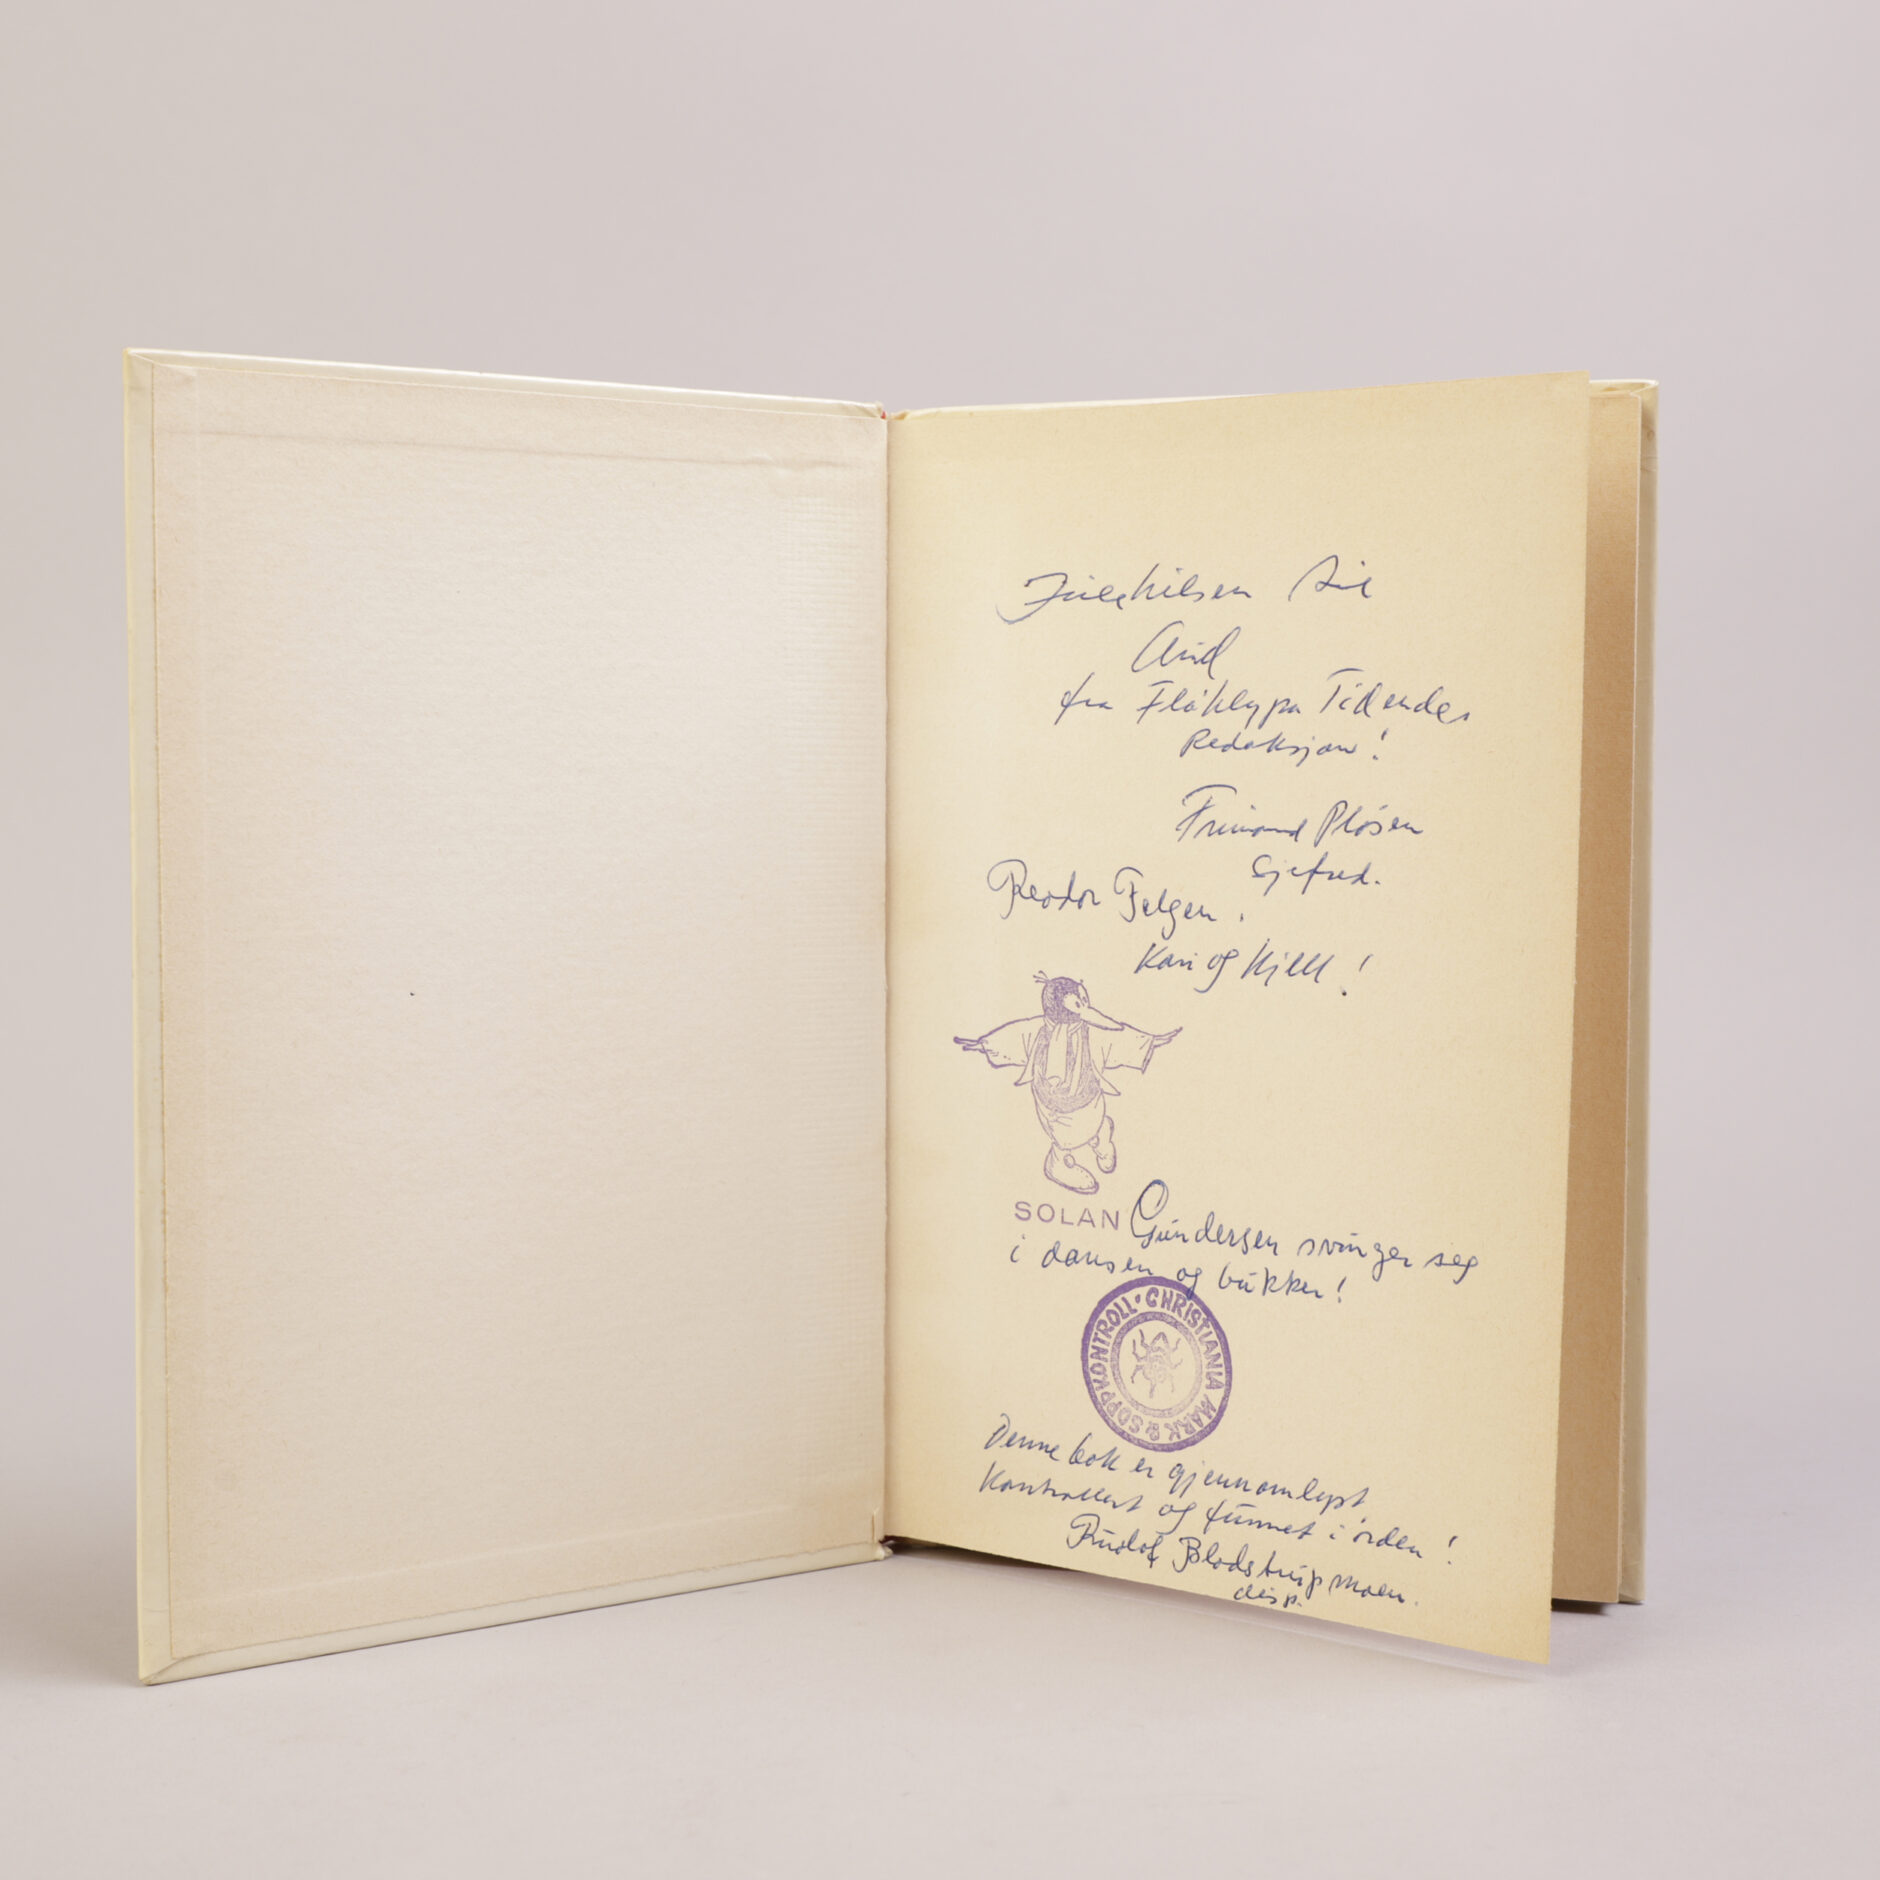 Julehilsen til
Arild
fra Flåklypa Tidendes
Redaksjon!
Frimand Pløsen
Sjefred.
Reodor Felgen.
Kari og Kjell!
SOLAN Gundersen svinger seg
i dansen og bukker!
CHRISTIANIA MARK & SOPPKONTROLL ·
Denne bok er gjennomlyst
kontrollert og funnet i orden!
Rudolf Blodstrupmoen.
disp.